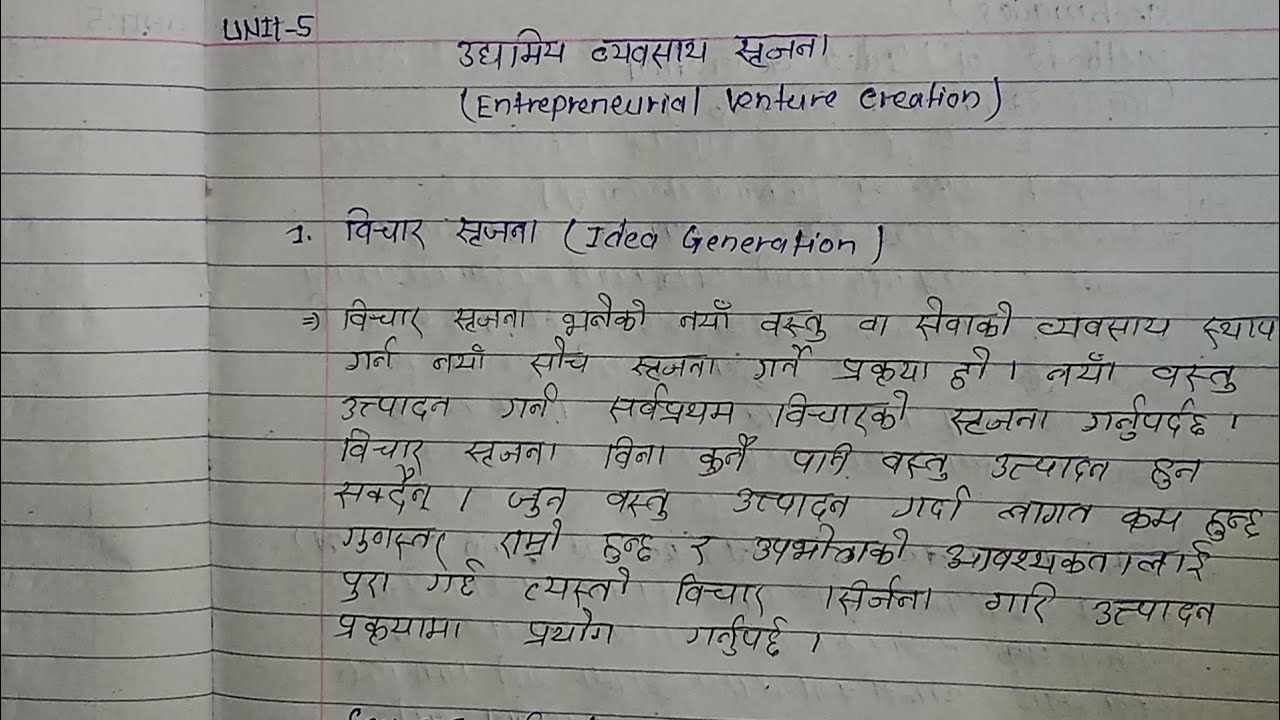 UNIT-5
उद्यमिय व्यवसाय सृजना
(Entrepreneurial Venture Creation)
1. विचार सृजना (Idea Generation)
⇒ विचार सृजना भनेको नयाँ वस्तु वा सेवाको व्यवसाय स्थाप
गर्न नयाँ सोच सृजना गर्ने प्रकृया हो । नयाँ वस्तु
उत्पादन गर्न सर्वप्रथम विचारको सृजना गर्नुपर्दछ ।
विचार सृजना विना कुनै पनि वस्तु उत्पादन हुन
सक्दैन् । जुन वस्तु उत्पादन गर्दा लागत कम हुन्छ
गुणस्तर राम्रो हुन्छ र उपभोक्ताको आवश्यकतालाई
पुरा गर्छ त्यस्तो विचार सिर्जना गरि उत्पादन
प्रकृयामा प्रयोग गर्नुपर्छ ।